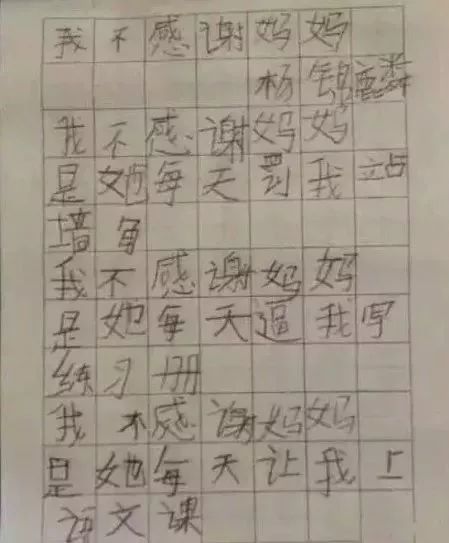 我不感谢妈妈
杨锦
我不感谢妈妈
是她每天罚我站
墙角
我不感谢妈妈
是她每天逼我写
练习册
我不感谢妈妈
是她每天让我上
语文课